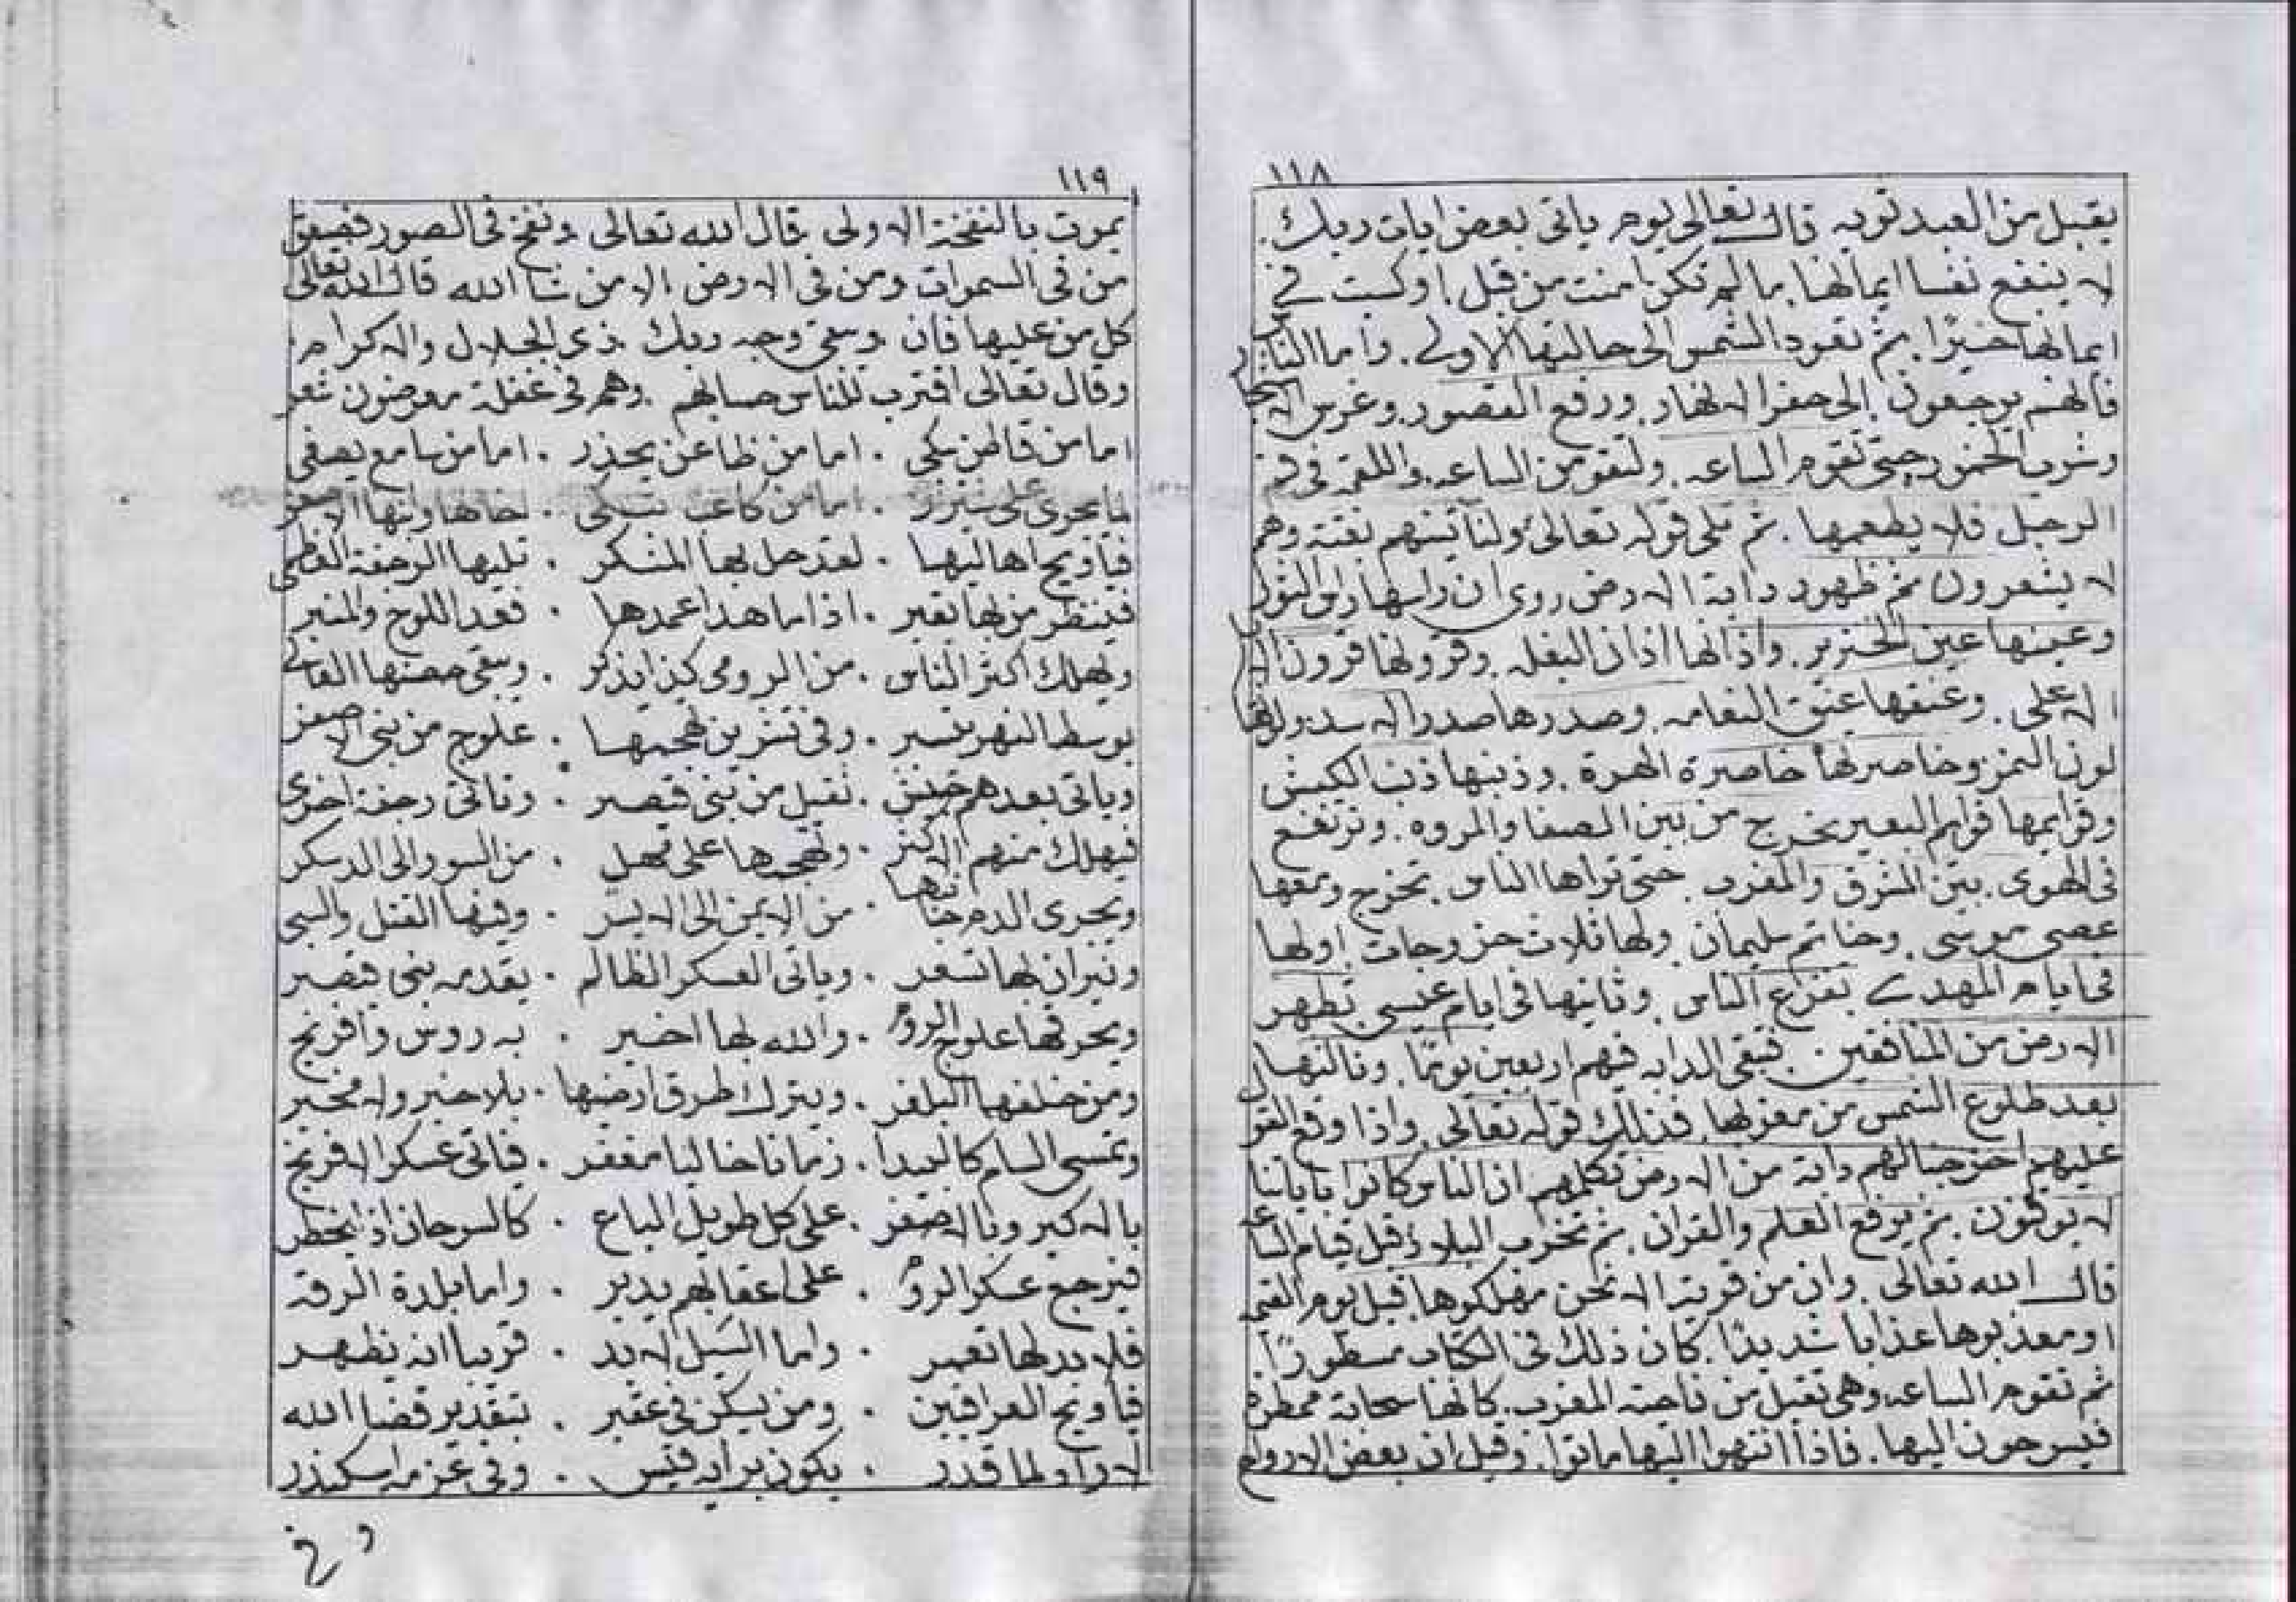 ١١٨
يقبل من العبد توبه قال تعالى يوم ياتى بعض ايات ربك.
لا ينفع نفسا ايمانها. ما لم تكن امنت من قبل. او كسبت في
ايمانها خيرا. ثم تعود الشمس الى حالتها الاولى. واما الناس
فانهم يرجعون. الى حفر الانهار. ورفع القصور. وغرس الاشجار
وشرب الخمور حتى تقوم الساعه. ولتقومن الساعه. واللقمه في فم
الرجل فلا يطعمها. ثم تلى قوله تعالى ولتاتينهم بغتة وهم
لا يشعرون ثم ظهور دابة الارض روى ان راسها راس الثور
وعينها عين الخنزير. واذانها اذان البغله. وقرونها قرون الايل
الاعلى. وعنقها عنق النعامه. وصدرها صدر الاسد. ولونها
لون النمر وخاصرتها خاصرة الهرة. وذنبها ذنب الكبش
وقوايمها قوايم البعير يخرج من بين الصفا والمروه. وترتفع
فى الهوى. بين المشرق والمغرب. حتى تراها الناس. تخرج ومعها
عصى موسى. وخاتم سليمان. ولها ثلاث خروجات. اولها
فى ايام المهدي بفزاع الناس. وثانيها فى ايام عيسى تطهر
الارض من المنافقين. فتبقى الدابه فيهم اربعين يوما. وثالثها
بعد طلوع الشمس من مغربها. فذلك قوله تعالى. واذا وقع القول
عليهم اخرجنا لهم دابة من الارض تكلمهم ان الناس كانوا باياتنا
لا يوقنون. ثم يرفع العلم والقران. ثم تخرب البلاد قبل قيام الساعه
قال الله تعالى. وان من قرية الا نحن مهلكوها. قبل يوم القيمه
او معذبوها عذابا شديدا. كان ذلك فى الكتاب مسطورا.
ثم تقوم الساعه. وهى تقبل من ناحية المغرب. كانها سحابة ممطره
فيسرحون اليها. فاذا انتهوا اليها ماتوا. وقيل ان بعض الارواح
١١٩
يموت بالنفخة الاولى. قال الله تعالى. ونفخ فى الصور فصعق
من فى السموات ومن فى الارض الا من شا الله قال الله تعالى
كل من عليها فان. ويبقى وجه ربك. ذى الجلال والاكرام.
وقال تعالى اقترب للناس حسابهم. وهم فى غفلة معرضون شعر
اما من قاطن يبكى. اما من ظاعن يحذر. اما من سامع يصغى
لما يجرى على شيزر. اما من كاعب تبكى. اخاها وابنها الاصغر
فيا ويح اهاليها. لقد حل بها المنكر. تليها الرجفة العظمى
فينظر من بها تغبر. اذا ما هد اعمدها. فعد اللوح والمنبر
ويهلك اكثر الناس. من الرومى كذا يذكر. ويبقى حصنها القاني
بوسط النهر يفسر. وفى تشرين هجمها. علوج من بنى الاصفر
وياتى بعدهم جيش. تقبل من بنى قيصر. وتاتى رجفة اخرى
فيهلك منهم الاكثر. وتهجمها على مهل. من السور الى الدسكر
وتجرى الدم حنانها. من الايمن الى الايسر. وفيها القتل والسبى
ونيران لها تسعر. وياتى العسكر الظالم. يقدمه بنى قيصر
ويحرقها علوج الروم. والله لها اخبر. به روس وافرنج
ومن خلفها البلغر. ويترك طرق ارضها. بلا خبر ولا مخبر
وتمسى الشام كالبيدا. زمانا خاليا مقفر. فياتى عسكر الافرنج
بالاكبر وبالاصغر. على كل طويل الباع. كالسرحان اذ يخطر
فيرجع عسكر الروم. على اعقابهم يدبر. واما بلدة الرقه
فلا بد لها تعمر. واما السيل لا بد. قريبا انه يظهر
فيا ويح العراقين. ومن يسكن فى عقبر. بتقدير قضا الله
لا راد لما قدر. يكون براية قيس. وفى عزمة اسكندر